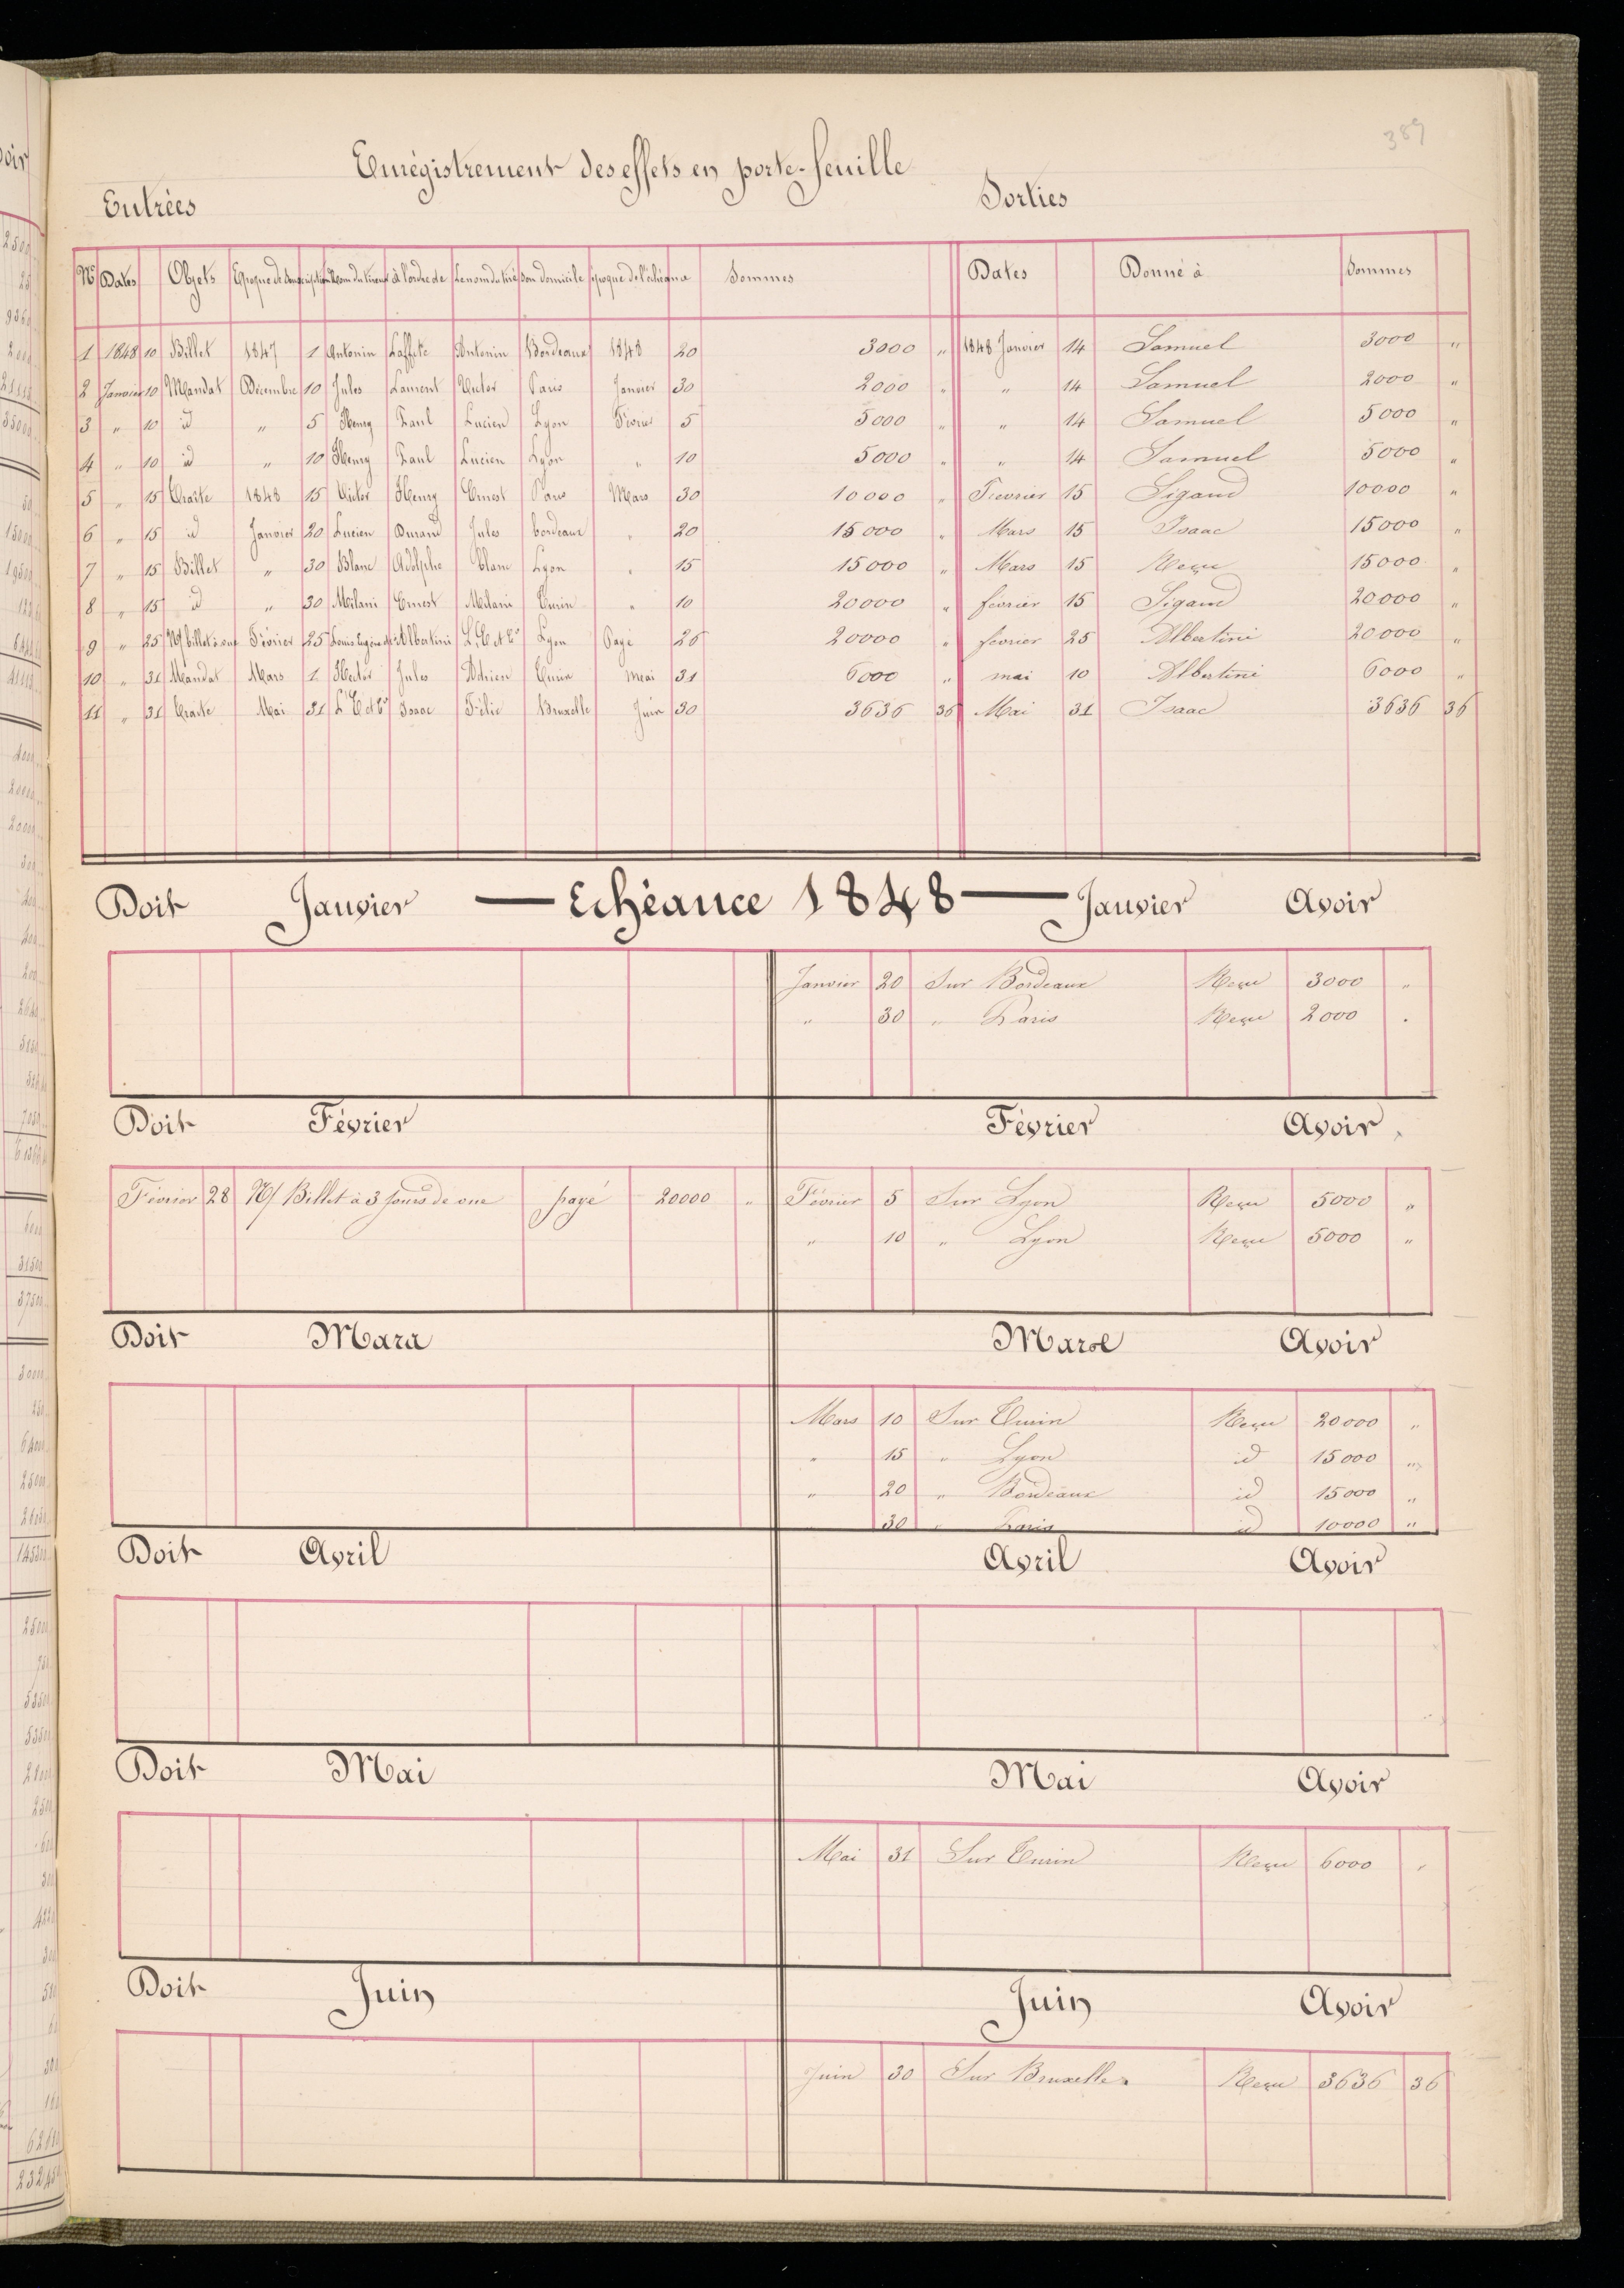 389
Enrégistrement des effets en porte-feuille
Entrées Sorties
Nº Dates Objets Epoque de Souscription Nom du tireur à l'ordre de Le nom du tiré Son domicile époque de l'échéance Sommes Dates Donné à Sommes
1 1848 10 Billet 1847 1 Antonin Laffite Antonin Bordeaux 1848 20 3000 " 1848 Janvier 14 Samuel 3000 "
2 Janvier 10 Mandat Décembre 10 Jules Laurent Victor Paris Janvier 30 2000 " " 14 Samuel 2000 "
3 " 10 id " 5 Henry Paul Lucien Lyon Février 5 5000 " " 14 Samuel 5000 "
4 " 10 id " 10 Henry Paul Lucien Lyon " 10 5000 " " 14 Samuel 5000 "
5 " 15 Traite 1848 15 Victor Henry Ernest Paris Mars 30 10000 " Février 15 Sigaud 10000 "
6 " 15 id Janvier 20 Lucien Durand Jules bordeaux " 20 15000 " Mars 15 Isaac 15000 "
7 " 15 Billet " 30 Blanc Adolphe Blanc Lyon " 15 15000 " Mars 15 Reçu 15000 "
8 " 15 id " 30 Milani Ernest Milani Turin " 10 20000 " février 15 Sigaud 20000 "
9 " 25 N/ billet à vue Février 25 Louis Eugène Albertini L. E et Cº Lyon Payé 26 20000 " fevrier 25 Albertini 20000 "
10 " 31 Mandat Mars 1 Hector Jules Adrien Turin Mai 31 6000 " mai 10 Albertini 6000 "
11 " 31 Traite Mai 31 L E et Cº Isaac Félix Bruxelle Juin 30 3636 36 Mai 31 Isaac 3636 36
Doit Janvier — Echéance 1848 — Janvier Avoir
Janvier 20 Sur Bordeaux Reçu 3000 "
" 30 " Paris Reçu 2000 "
Doit Février Février Avoir
Février 28 N/ Billet à 3 jours de vue payé 20000 " Février 5 Sur Lyon Reçu 5000 "
" 10 " Lyon Reçu 5000 "
Doit Mars Mars Avoir
Mars 10 Sur Turin Reçu 20000 "
" 15 " Lyon id 15000 "
" 20 " Bordeaux id 15000 "
30 " Paris id 10000 "
Doit Avril Avril Avoir
Doit Mai Mai Avoir
Mai 31 Sur Turin Reçu 6000 "
Doit Juin Juin Avoir
Juin 30 Sur Bruxelles Reçu 3636 36